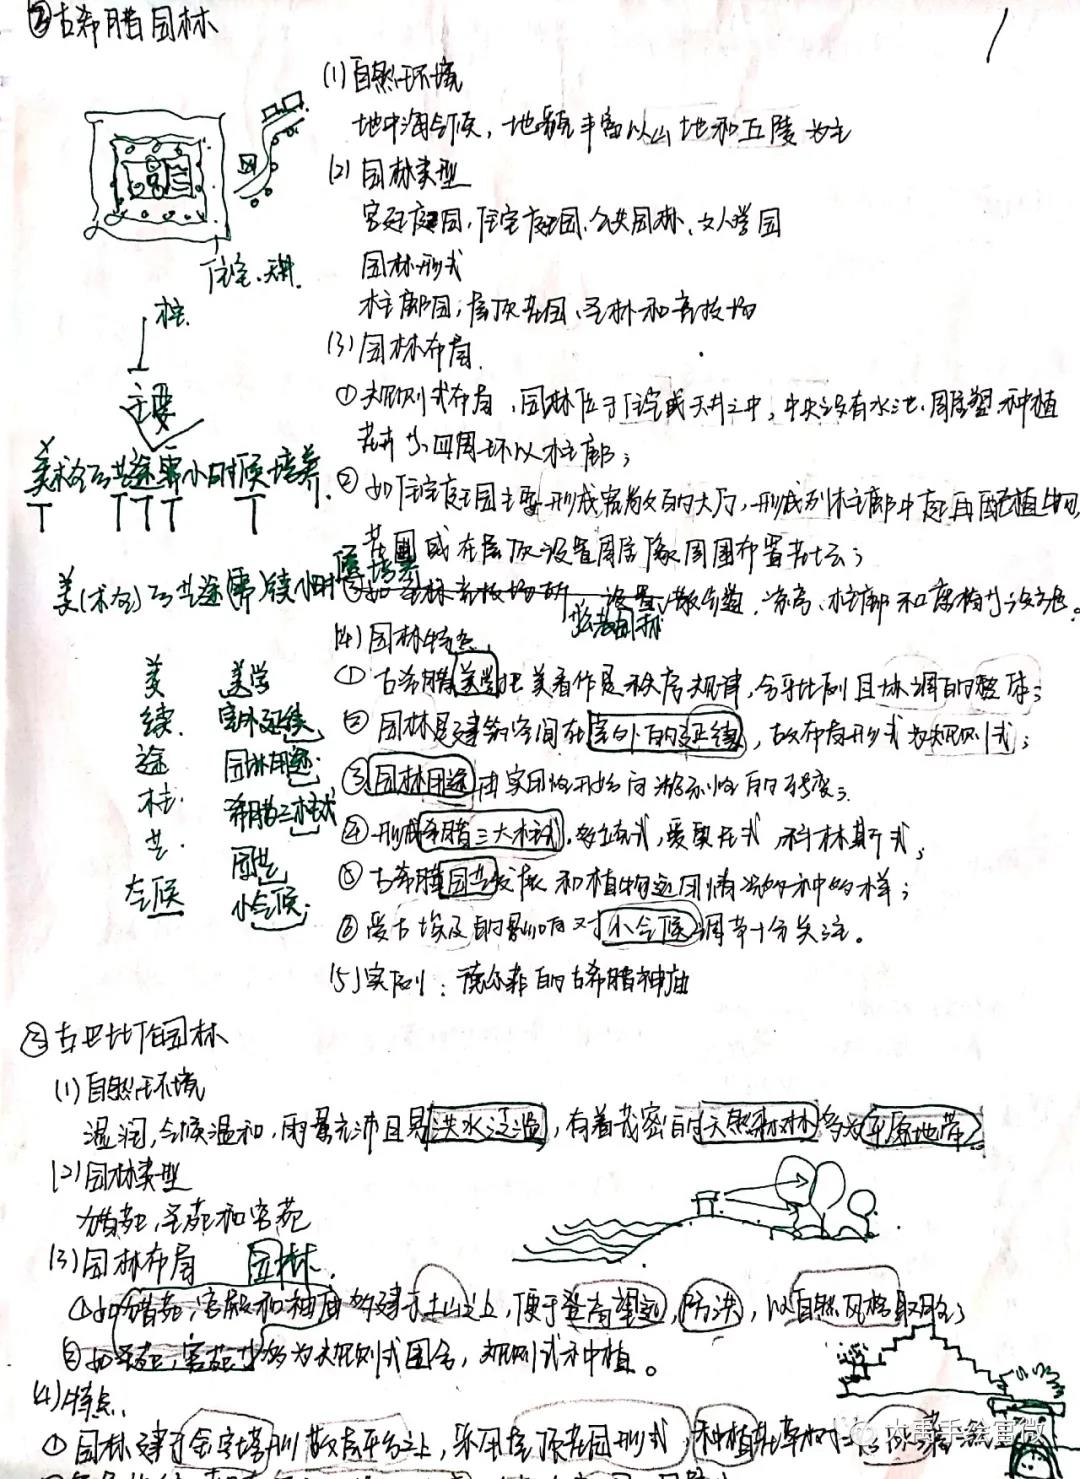 ②古希腊园林
(1)自然环境
地中海气候，地貌丰富以山地和丘陵为主
(2)园林类型
宫廷庭园，住宅庭园、公共园林、文人学园
园林形式
柱廊园，屋顶花园、圣林和竞技场
(3)园林布局
①规则式布局，园林位于住宅或天井之中，中央设有水池、雕塑、种植
花卉，四周环以柱廊；
②如住宅庭园主要形成宽敞的大厅，形成列柱廊中庭再配植物，
或在屋顶设置周围布置花坛；
设置 柱廊和
(4)园林特点
①古希腊美学把美看作是秩序规律，合乎比例且协调的整体；
②园林是建筑空间在室外的延续，故布局形式为规则式；
③园林用途由实用性开始向游乐性的转变；
④形成希腊三大柱式，多立克式，爱奥尼式，科林斯式；
⑤古希腊园艺发展和植物运用
⑥受古埃及的影响对小气候调节十分关注。
(5)实例：德尔菲的古希腊神庙
住宅、天井
柱
主要
美 途 小时候培养
美 途
美 美学
续 室外延续
途 园林用途
柱 希腊三柱式
艺 园艺
气候 小气候
②古巴比伦园林
(1)自然环境
湿润，气候温和，雨量充沛且易洪水泛滥，有着茂密的天然森林多为平原地带
(2)园林类型
猎苑，圣苑和宫苑
(3)园林布局 园林
①如猎苑，宫殿和神庙多建于土山之上，便于登高望远，防洪，以自然风格取胜；
②如圣苑，宫苑多为规则式围合，规则式种植。
(4)特点
①园林建于金字塔形数层平台上，采用屋顶花园形式，种植花草树
大禹手绘官微